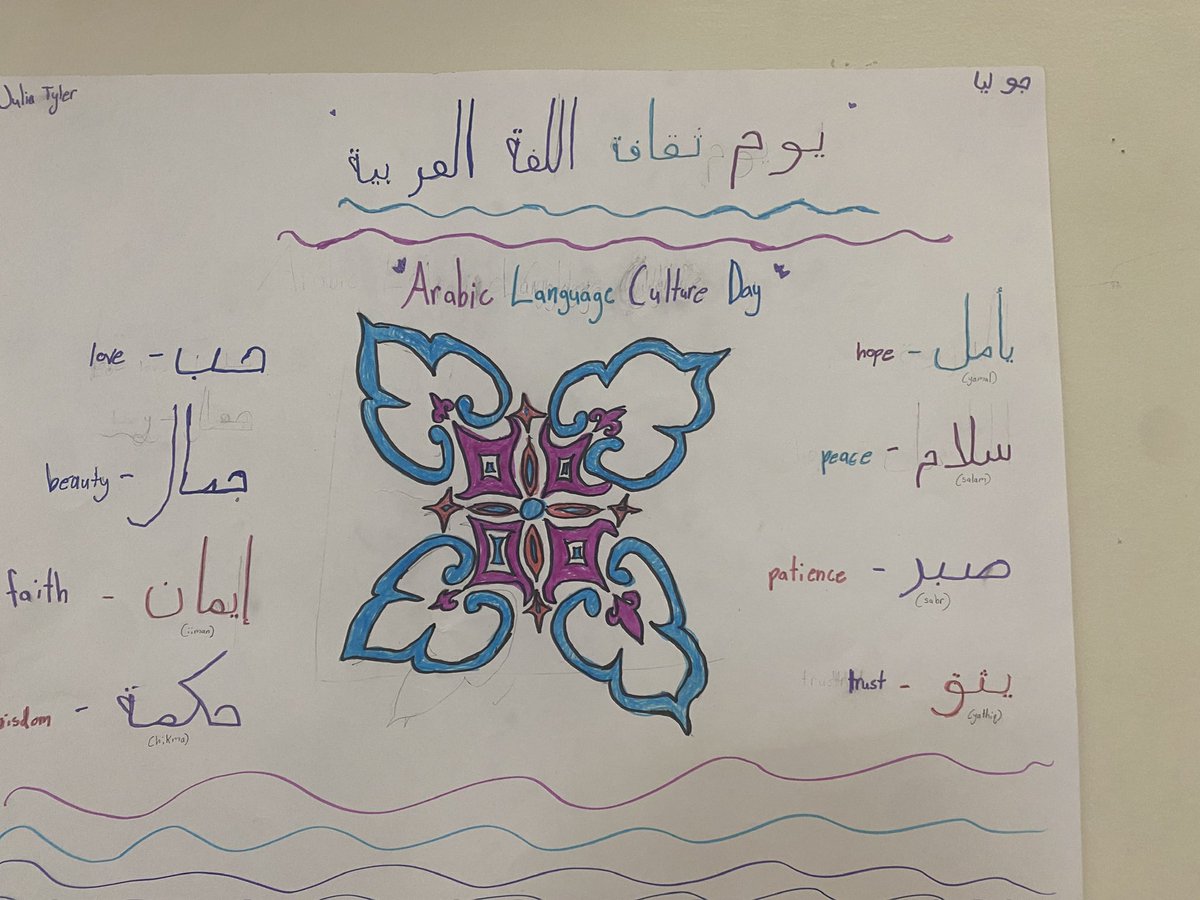 Julia Tyler
جوليا
يوم ثقافة اللغة العربية
"Arabic Language Culture Day"
love - حب
beauty - جمال
faith - إيمان
(iiman)
wisdom - حكمة
(hikma)
hope - يأمل
(yamal)
peace - سلام
(salam)
patience - صبر
(sabr)
trust - يثق
(yathiq)